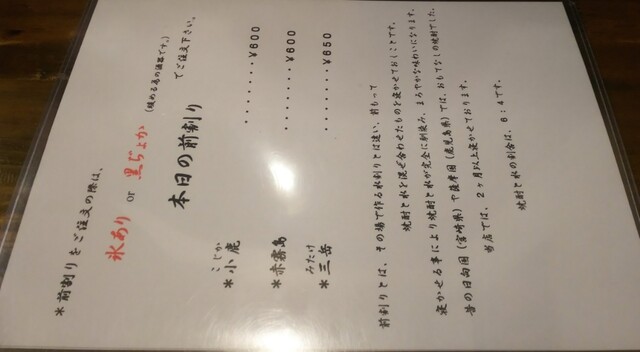 *前割りをご注文の際は、
氷あり or 黒ぢょか
(温める為の酒器です。)
でご注文下さい。
本日の前割り
こじか
*小鹿 ........¥600
*赤霧島 .......¥600
みたけ
*三岳 ........¥650
前割りとは、その場で作る水割りとは違い、前もって
焼酎と水を混ぜ合わせたものを寝かせておくことです。
寝かせる事により焼酎と水が完全に馴染み、まろやかな味わいになります。
昔の日向国(宮崎県)や薩摩国(鹿児島県)では、おもてなしの焼酎でした。
当店では、2ヶ月以上寝かせております。
焼酎と水の割合は、6:4です。